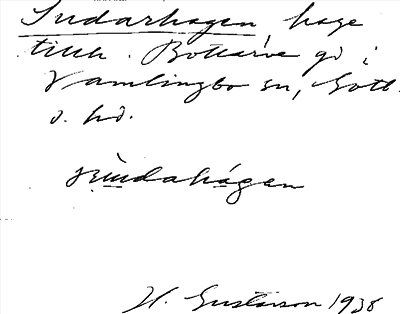 Sudarhagen, hage
tillh. Bottarve gd i
Vamlingbo sn, Gotl.
s. hd.
H. Gustavson 1938